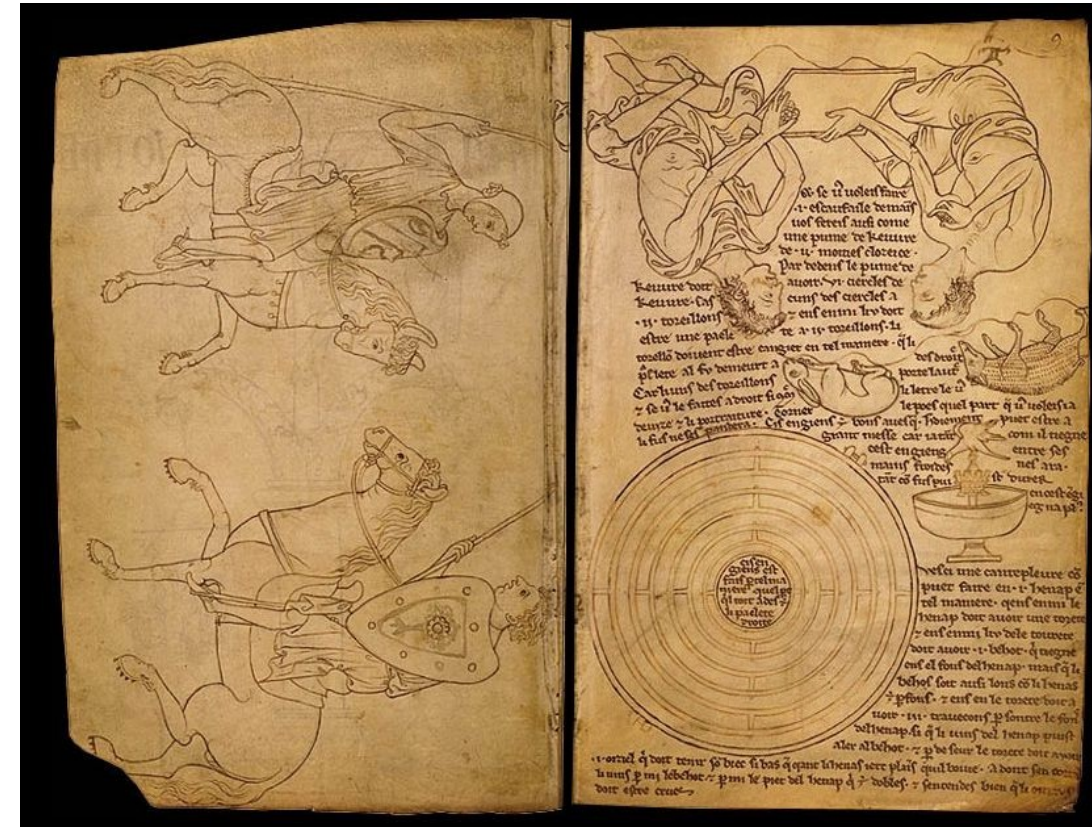 9
& se uͦ voleis faire
·i· escaufaile de mains
vos fereis ausi come
une pume de keuvre
de ·ii· moities clozeice ·
Par dedens le pume de
keuvre doit avoir · vi · ciercles de
keuvre · cas cuns des ciercles a
·ii· toreillons ⁊ ens enmi liv doit
estre une paele te a · ii · toreillons · li
torellõ doivent estre cangiet en tel maniere · q̃ li
demeurt a droit
Car li uns des toreillons porte lautͤ
⁊ se uͦ le faites a droit si li letre le uͦ
devize ⁊ li portraiture · torner le poes quel part q̃ uͦ voleis ia
li fus ne Cis engiens ÷ bons a puet estre a
grant messe car ia tãt com il tiegne
cest engieng entre ses
mains froides nes ara ·
tãt cõ fus puist durer
cis en
giens est
fais
maniere quel
ades
li paelete
droite
Vesci une cantepleure cõ
puet faire en · i · henap ẽ
tel maniere · qens enmi le
henap doit avoir une torete
⁊ ens enmi liv dele torete
doit avoir · i · behot · q̃ tiegne
ens el fons del henap · mais q̃ li
behos soit ausi lons cõ li henas
÷ pfons · ⁊ ens en le torete doit a
voir · iii · travecons p̲ sontre le fon
del henap · si q̃ li vins del henap puist
aler al behot · ⁊ p̲ de seur le torete doit avoir
·i· oiziel q̃ doit tenir sõ biec si bas q̃ qant li henas iert plais quil boive · Adont sen
li vins p̲ mi le behot ⁊ p̲ mi le piet del henap q̃ ÷ dobles · ⁊ sentendes bien q̃ li
doit estre crues